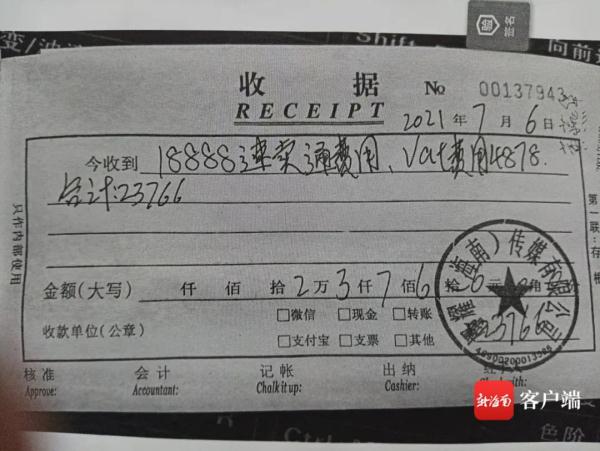 Shift
向前
验
签名
收 据 No 00137943
RECEIPT
2021 年 7 月 6 日
今收到 18888速卖通费用、Vat费用4878.
合计:23766
只作内部使用
第一联:存根
金额(大写) 仟 佰 拾 2 万 3 仟 7 佰 6 拾 6 元 角
¥23766
(海南)传媒有限公司
收款单位(公章) □微信 □现金 □转账
□支付宝 □支票 □其他
核准 会计 记帐 出纳
Approve: Accountant: Chalk it up: Cashier:
新海南 客户端
Ctrl
色阶